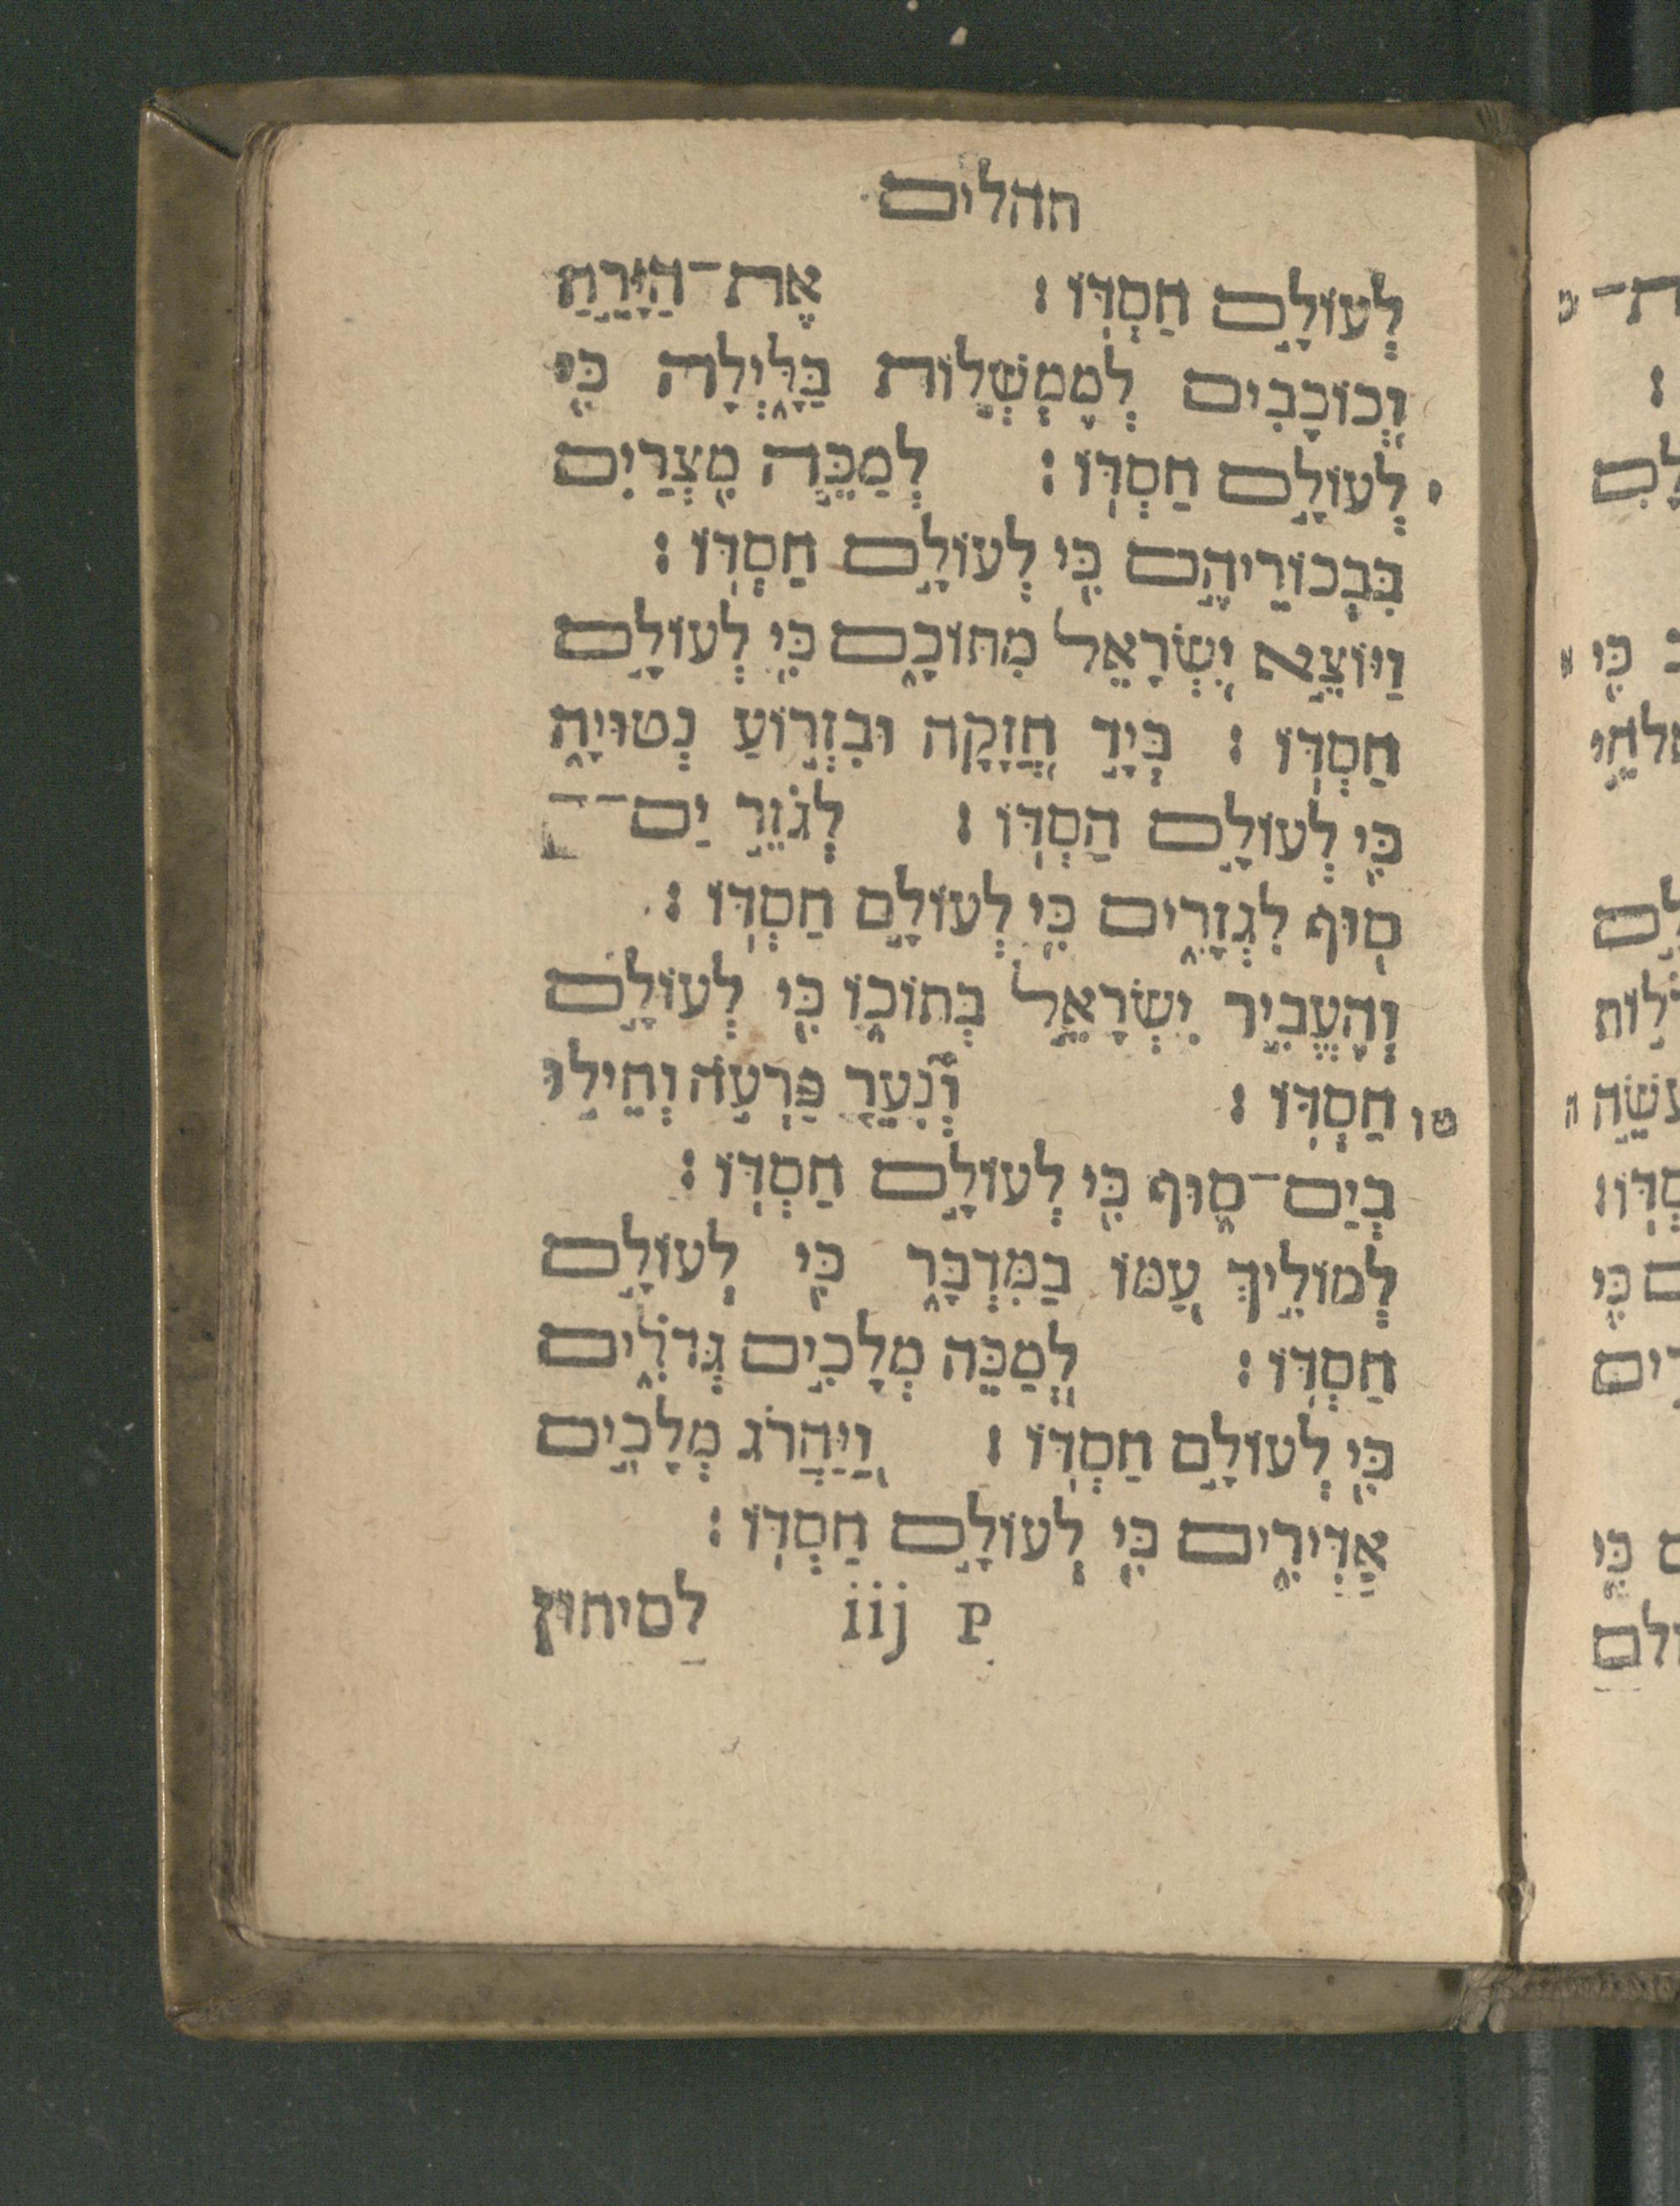 תהלים
לְעוֹלָ֣ם חַסְדּֽוֹ: אֶת־הַיָּרֵ֣חַ
וְ֭כוֹכָבִים לְמֶמְשְׁל֣וֹת בַּלָּ֑יְלָה כִּ֖י
י לְעוֹלָ֣ם חַסְדּֽוֹ: לְמַכֵּ֣ה מִ֭צְרַיִם
בִּבְכוֹרֵיהֶ֑ם כִּ֖י לְעוֹלָ֣ם חַסְדּֽוֹ:
וַיּוֹצֵ֣א יִ֭שְׂרָאֵל מִתּוֹכָ֑ם כִּ֖י לְעוֹלָ֣ם
חַסְדּֽוֹ: בְּיָ֣ד חֲ֭זָקָה וּבִזְר֣וֹעַ נְטוּיָ֑ה
כִּ֖י לְעוֹלָ֣ם חַסְדּֽוֹ: לְגֹזֵ֣ר יַם־
ס֭וּף לִגְזָרִ֑ים כִּ֖י לְעוֹלָ֣ם חַסְדּֽוֹ:
וְהֶעֱבִ֣יר יִשְׂרָאֵ֣ל בְּתוֹכ֑וֹ כִּ֖י לְעוֹלָ֣ם
טו חַסְדּֽוֹ: וְנִ֘עֵ֤ר פַּרְעֹ֣ה וְחֵיל֣וֹ
בְיַם־ס֑וּף כִּ֖י לְעוֹלָ֣ם חַסְדּֽוֹ:
לְמוֹלִ֣יךְ עַ֭מּוֹ בַּמִּדְבָּ֑ר כִּ֖י לְעוֹלָ֣ם
חַסְדּֽוֹ: לְ֭מַכֵּה מְלָכִ֣ים גְּדֹלִ֑ים
כִּ֖י לְעוֹלָ֣ם חַסְדּֽוֹ: וַ֭יַּהֲרֹג מְלָכִ֣ים
אַדִּירִ֑ים כִּ֖י לְעוֹלָ֣ם חַסְדּֽוֹ:
p iij לְסִיחוֹן